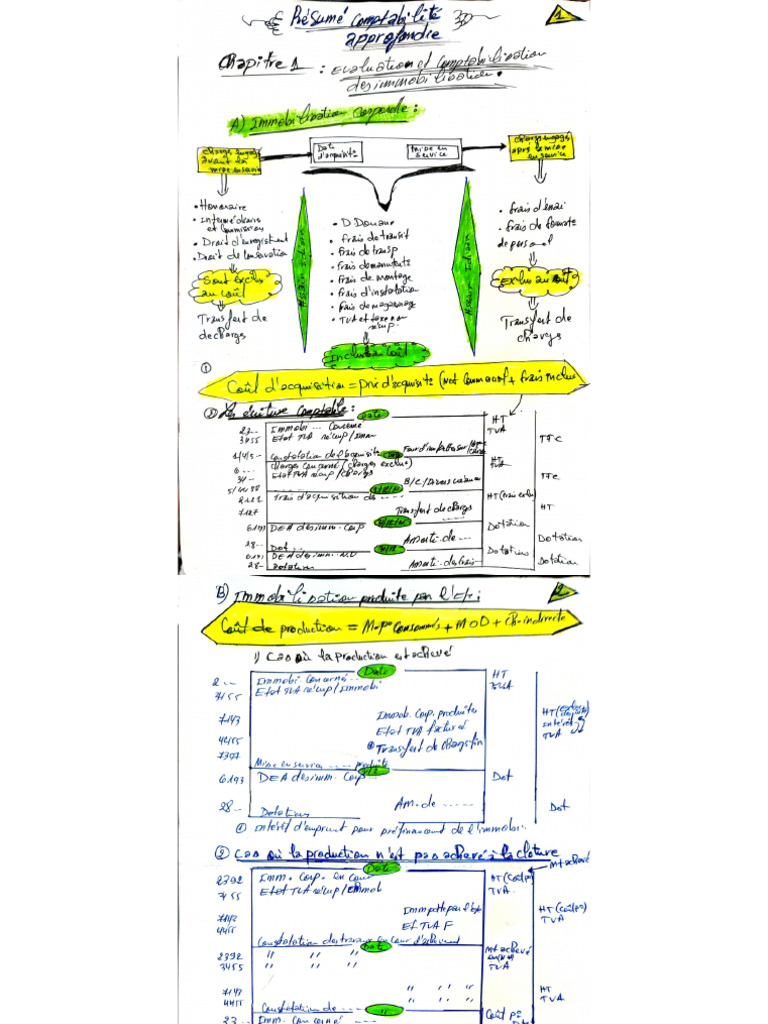 Résumé comptabilité
approfondie
1
Chapitre 1 : evaluation et comptabilisation
des immobilisation.
A) Immobilisation Corporelle :
charge engagé
avant la
mise en service
Date
d'acquisit°
Mise en
service
charge engagé
apré la mise
en service
• Honoraire
• Intermédiaires
et Commission
• Droit d'enregistrement
• Droit de Conservation
Sont exclus
au coût
Transfert de
charges
• D. Douane
• frais de transit
• frais de transp
• frais de manutent°
• frais de montage
• frais d'installation
• frais de magasinage
• TVA et taxe non
récup.
Inclus au Coût
• frais d'essai
• frais de format°
de personal
Exclus au coût
Transfert de
charges
①
Coût d'acquisition = prix d'acquisit° (net Commercial) + frais inclus
② Les écriture comptable :
Date
2 3 --
3455
Immobi ... Concerné
Etat TVA récup / Imm
HT
TVA
TTC
Constatation de l'acquisit°
6 ...
34 --
charges concerné (charges exclus)
Etat TVA récup / charges
HT
TVA
B/C / Divers créanciers
TTC
5/4488
2121
Frais d'acquisition des -----
HT (frais exclu)
7197
Transfert de charges
HT
6193
DEA des imm. Corp
Dotation
28--
Amorti. de ---
Dotation
Dot ...
DEA des imm. N.V
Dotations
28-
Amorti. des frais
Dotation
Dotations
2
B) Immobilisation produite par l'e/se :
Coût de production = M.p° Consommés + MOD + ch. indirecte
1) Cas où la production est achevé
Date
2 ---
3455
Immobi Concerné...
Etat TVA récup / Immobi
HT
TVA
7143
Immob. Corp. produites
4455
Etat TVA facturé
7397
Transfert de charges fin
HT
intérêt
TVA
Mise en service ... produite
6193
DEA des imm. Corp
Dot
28--
Am. de -----
Dot
Dotations
① intérêt d'emprunt pour préfinancement de l'immobi.
② Cas où la production n'est pas achevé à la cloture
Date
2392
3455
Imm. Corp. en cours
Etat TVA récup / Immob
HT (Coût p°)
TVA
mt achevé
Imm ptte par l'e/se
4455
Et TVA F
HT (coût p°)
TVA
Constatation des travaux en cour d'achevement
Date
2392
3455
" " "
" " "
mt achevé
TVA
7143
4455
" " "
HT
TVA
Constatation de ----
23--
Imm. Concerné ---
Coût p°